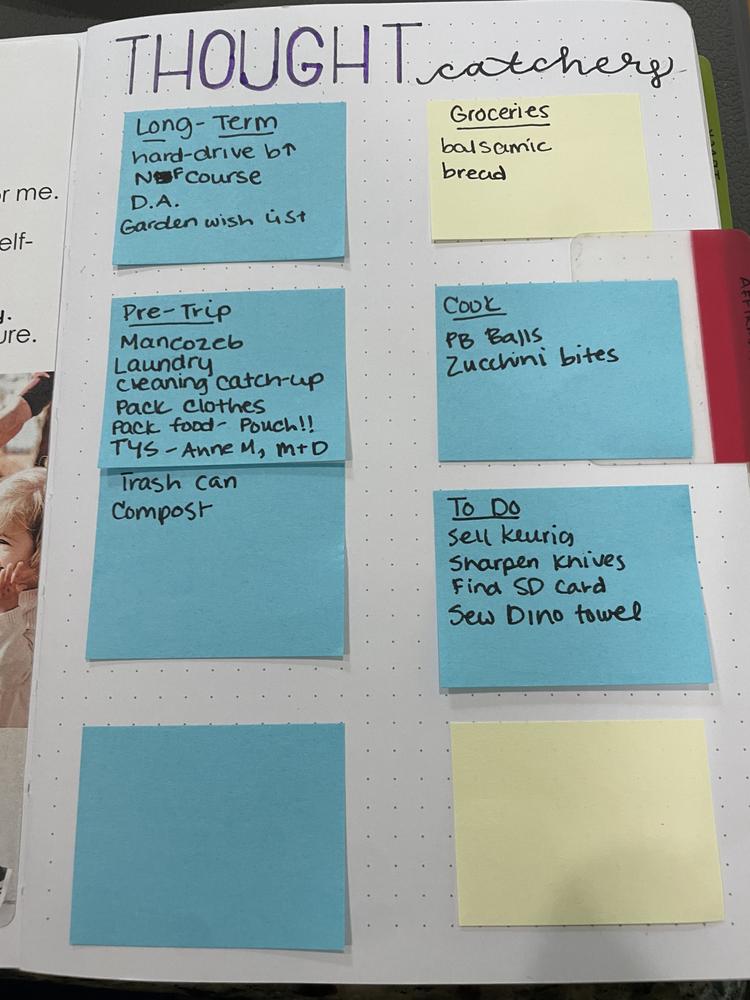 THOUGHT catchers
Long-Term
hard-drive b↑
course
D.A.
Garden wish list
Pre-Trip
Mancozeb
Laundry
cleaning catch-up
Pack clothes
Pack food - Pouch!!
TYS - Anne M, M+D
Trash can
Compost
Groceries
balsamic
bread
Cook
PB Balls
Zucchini bites
To Do
Sell keurig
Sharpen knives
Find SD card
Sew Dino towel
r me.
elf-
y.
ure.